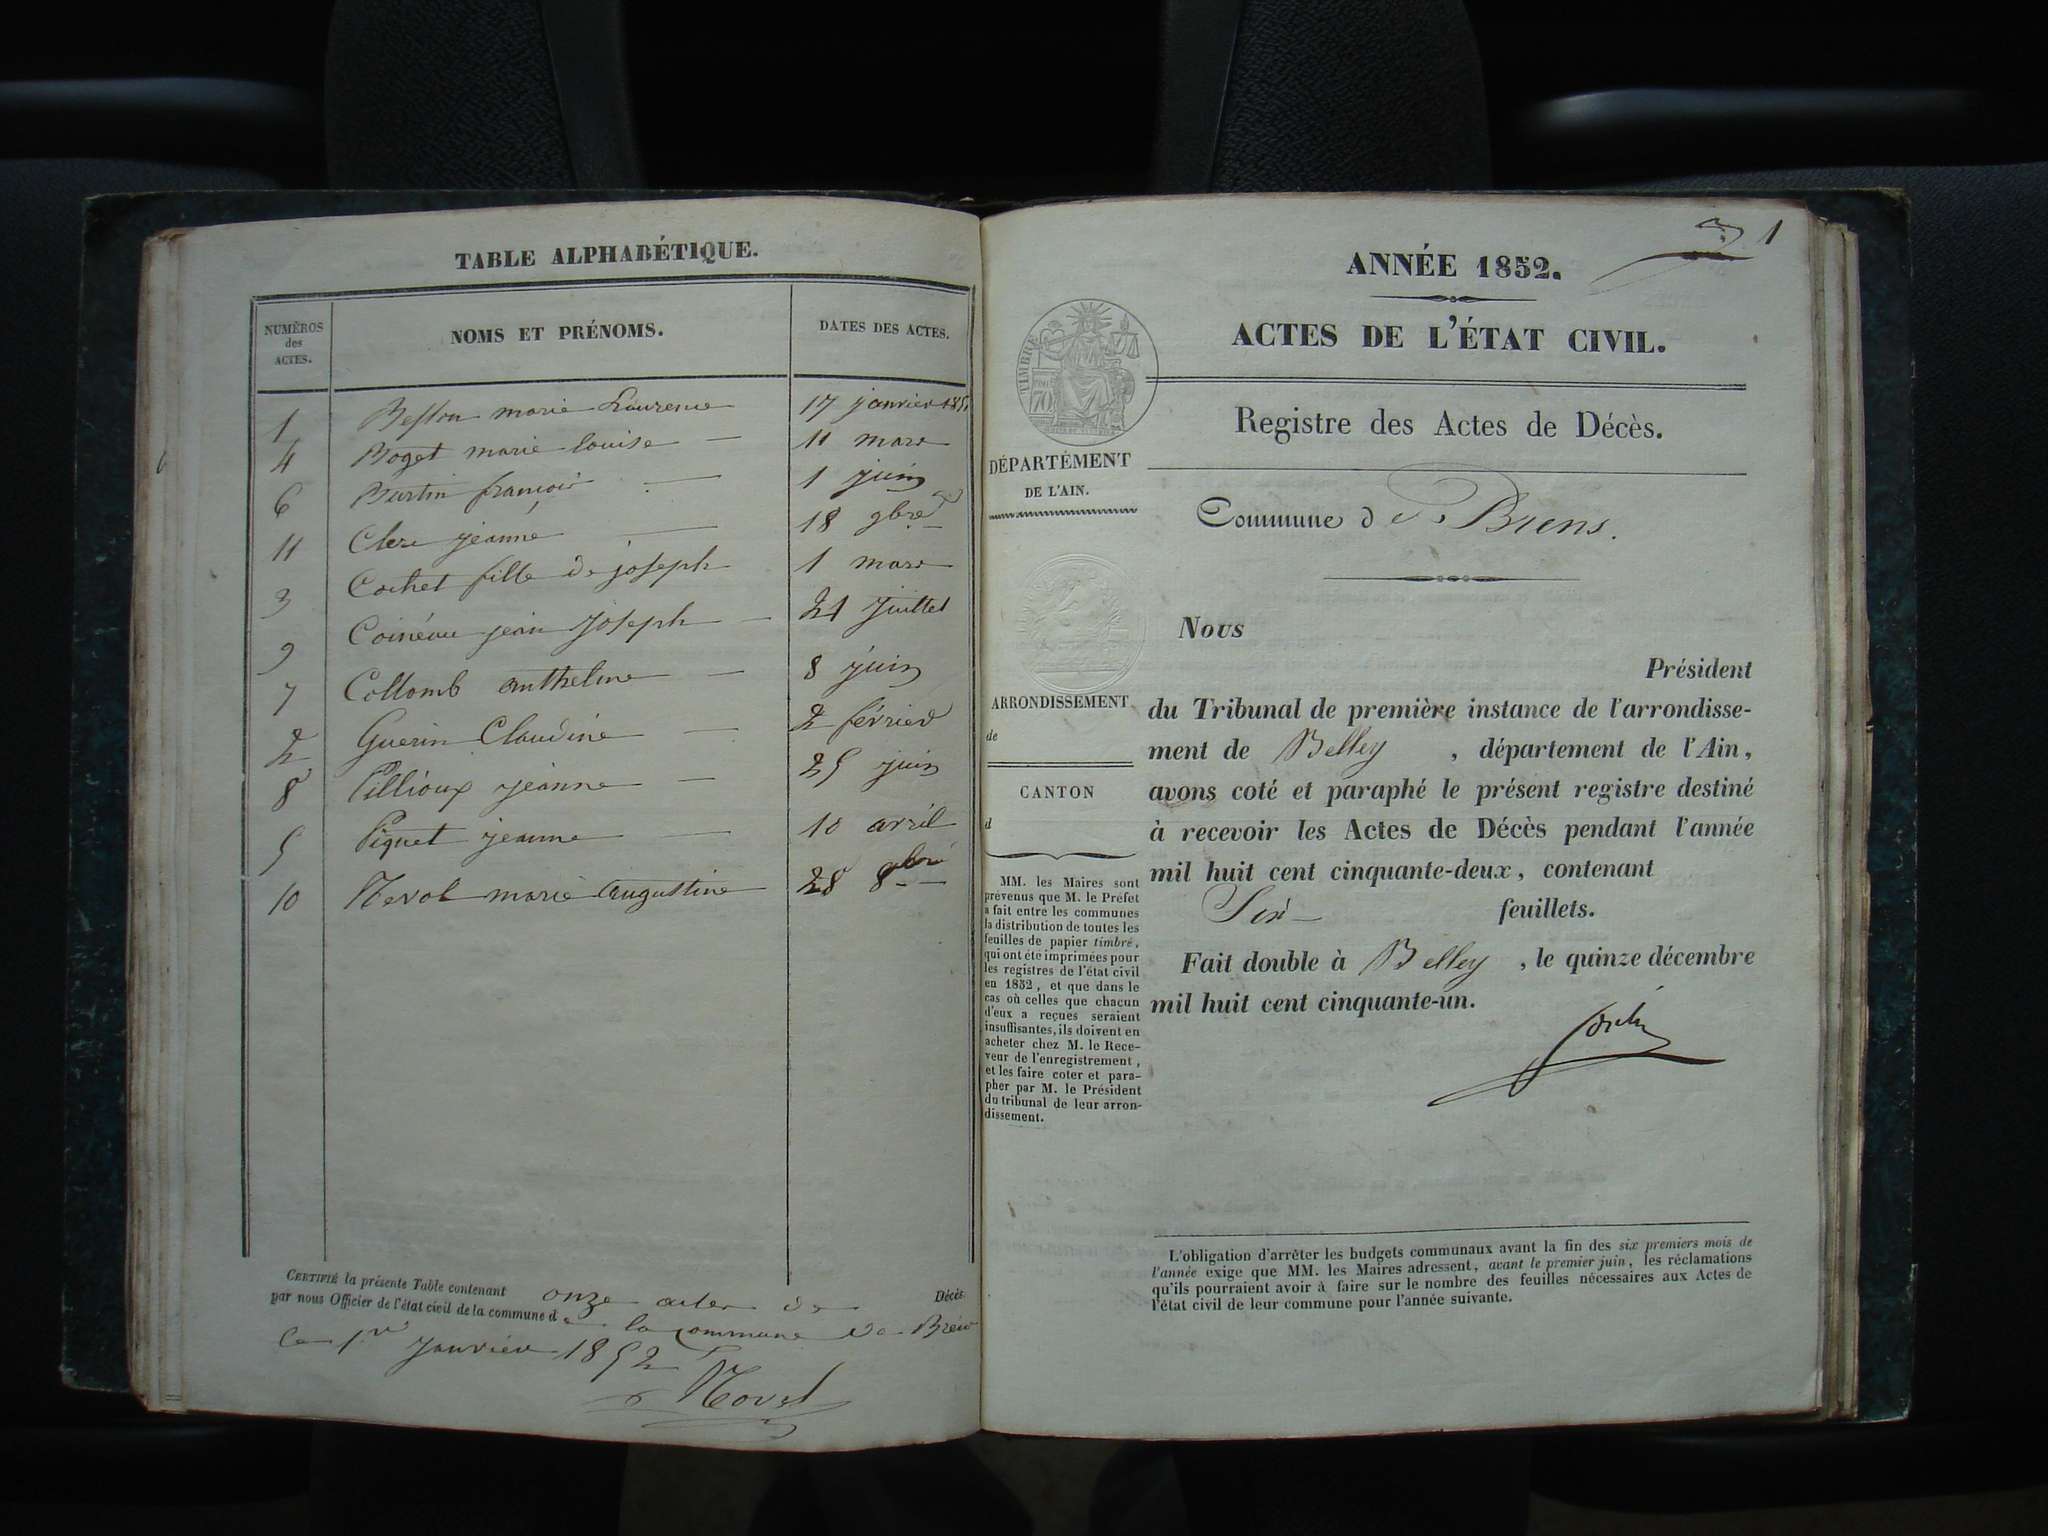 TABLE ALPHABÉTIQUE.
NUMÉROS des ACTES.
NOMS ET PRÉNOMS.
DATES DES ACTES.
1 Besson marie Laurence 17 janvier 185
4 Boget marie louise — 11 mars
6 Burtin françois — 1 juin
11 Clerc jeanne — 18 9bre
3 Cochet fille de joseph 1 mars
9 Coinéau jean Joseph — 21 Juillet
7 Collomb anthelme — 8 juin
2 Guerin Claudine — 2 février
8 Pillioux jeanne — 25 juin
5 Piquet jeanne — 10 avril
10 Revol marie Augustine 28 8bre
CERTIFIÉ la présente Table contenant onze actes de Décès
par nous Officier de l'état civil de la commune de la commune de Brens
ce 1er Janvier 1852
1
ANNÉE 1852.
ACTES DE L'ÉTAT CIVIL.
TIMBRE
70
Registre des Actes de Décès.
DÉPARTÉMENT
DE L'AIN.
Commune de Brens.
Nous
Président
du Tribunal de première instance de l'arrondisse-
ment de Belley, département de l'Ain,
avons coté et paraphé le présent registre destiné
à recevoir les Actes de Décès pendant l'année
mil huit cent cinquante-deux, contenant
Six feuillets.
Fait double à Belley, le quinze décembre
mil huit cent cinquante-un.
ARRONDISSEMENT
de
CANTON
d
MM. les Maires sont
prévenus que M. le Préfet
a fait entre les communes
la distribution de toutes les
feuilles de papier timbré,
qui ont été imprimées pour
les registres de l'état civil
en 1852, et que dans le
cas où celles que chacun
d'eux a reçues seraient
insuffisantes, ils doivent en
acheter chez M. le Rece-
veur de l'enregistrement,
et les faire coter et para-
pher par M. le Président
du tribunal de leur arron-
dissement.
L'obligation d'arrêter les budgets communaux avant la fin des six premiers mois de
l'année exige que MM. les Maires adressent, avant le premier juin, les réclamations
qu'ils pourraient avoir à faire sur le nombre des feuilles nécessaires aux Actes de
l'état civil de leur commune pour l'année suivante.